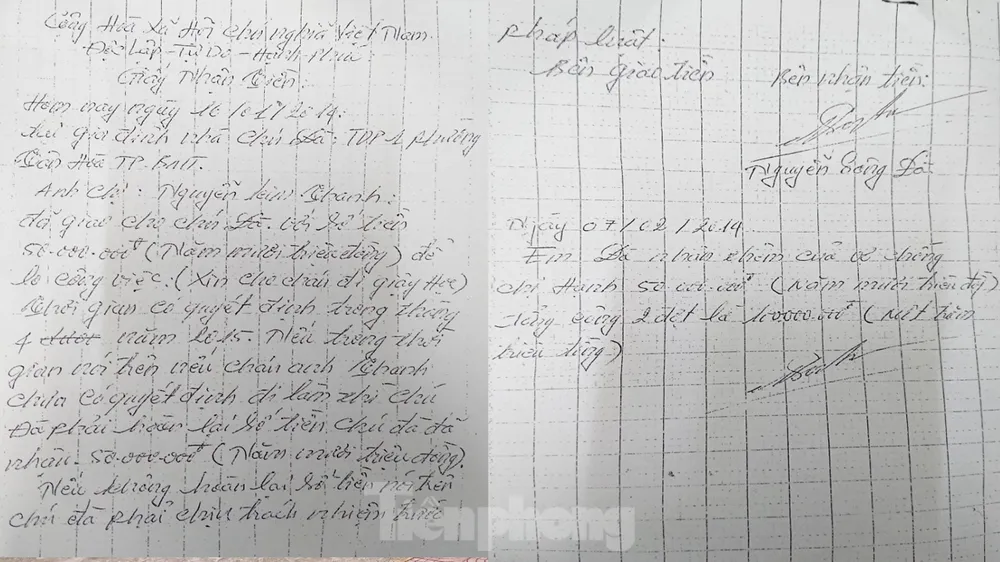 Cộng Hoà Xã Hội chủ nghĩa Việt Nam
Độc Lập - Tự Do - Hạnh Phúc
Giấy Nhận Tiền
Hôm nay ngày 16/01/2014:
tại gia đình nhà chú Đà: TDP 1 phường
Tân Hoà TP. BMT.
Anh Chị: Nguyễn Kim Thanh:
đã giao cho chú Đà. với số tiền
50.000.000đ (Năm mươi triệu đồng) để
lo công việc. (Xin cho cháu đi dạy Học)
Thời gian có quyết định trong tháng
4 năm 2015. Nếu trong thời
gian nói trên nếu cháu anh Thanh
chưa có quyết định đi làm thì chú
Đà phải hoàn lại số tiền chú đà đã
nhận. 50.000.000đ (Năm mươi triệu đồng).
Nếu không hoàn lại số tiền nói trên
chú đà phải chịu trách nhiệm trước
pháp luật:
Bên giao tiền
Bên nhận tiền:
Nguyễn Song Đà
Ngày 07/02/2014
Em Đà nhận thêm của vợ chồng
chị Hạnh 50.000.000đ (Năm mươi triệu đ)
Tổng cộng 2 đợt là 100.000.000đ (Một trăm
triệu đồng)
Tiền phong